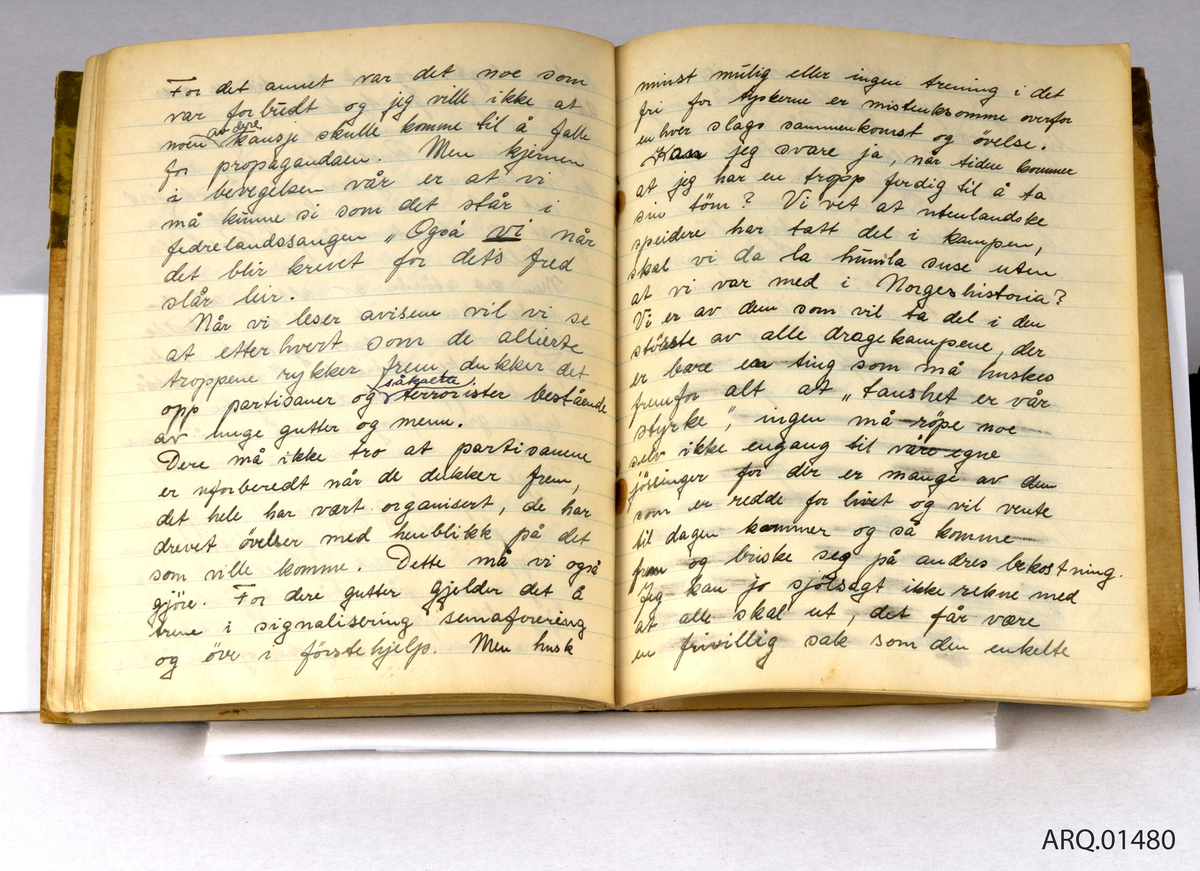 For det annet var det noe som
var forbudt og jeg ville ikke at
noen av dere kansje skulle komme til å falle
for propagandaen. Men kjernen
i bevegelsen vår er at vi
må kunne si som det står i
fedrelandssangen „Også vi når
det blir krevet for dets fred
slår leir.
Når vi leser avisene vil vi se
at etterhvert som de allierte
troppene rykker frem, dukker det
opp partisaner og såkaette terrorister bestående
av unge gutter og menn.
Dere må ikke tro at partisanene
er uforberedt når de dukker frem,
det hele har vært organisert, de har
drevet övelser med henblikk på det
som ville komme. Dette må vi også
gjöre. For dere gutter gjelder det å
trene i signalisering semaforering
og öve i förstehjelp. Men husk
minst mulig eller ingen trening i det
fri for tyskerne er mistenksomme overfor
enhver slags sammenkomst og övelse.
Kan jeg svare ja, når tiden kommer
at jeg har en tropp ferdig til å ta
sin törn? Vi vet at utenlandske
speidere har tatt del i kampen,
skal vi da la humla suse uten
at vi var med i Norgeshistoria?
Vi er av dem som vil ta del i den
störste av alle dragekampene, der
er bare en ting som må huskes
fremfor alt at „taushet er vår
styrke”, ingen må röpe noe
selv ikke engang til våre egne
jössinger for der er mange av dem
som er redde for livet og vil vente
til dagen kommer og så komme
frem og briske seg på andres bekostning.
Jeg kan jo sjölsagt ikke rekne med
at alle skal ut, det får være
en frivillig sak som den enkelte
ARQ.01480